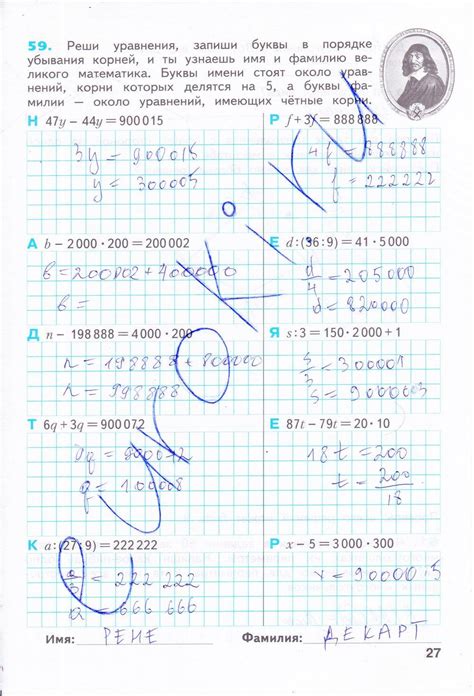 59. Реши уравнения, запиши буквы в порядке
убывания корней, и ты узнаешь имя и фамилию ве-
ликого математика. Буквы имени стоят около урав-
нений, корни которых делятся на 5, а буквы фа-
милии — около уравнений, имеющих чётные корни.
Н 47y – 44y = 900 015
3y = 900015
y = 300005
Р f + 3f = 888 888
4f = 888888
f = 222222
А b – 2 000 · 200 = 200 002
b = 200002 + 400000
b =
Е d : (36 : 9) = 41 · 5 000
d/4 = 205000
d = 820000
Д n – 198 888 = 4 000 · 200
n = 198888 + 800000
n = 998888
Я s : 3 = 150 · 2 000 + 1
s/3 = 300001
s = 900003
Т 6q + 3q = 900 072
9q = 900072
q = 100008
Е 87t – 79t = 20 · 10
18t = 200
t = 200/18
К a : (27 : 9) = 222 222
a/3 = 222 222
a = 666 666
Р x – 5 = 3 000 · 300
x = 900005
Имя: РЕНЕ Фамилия: ДЕКАРТ
27